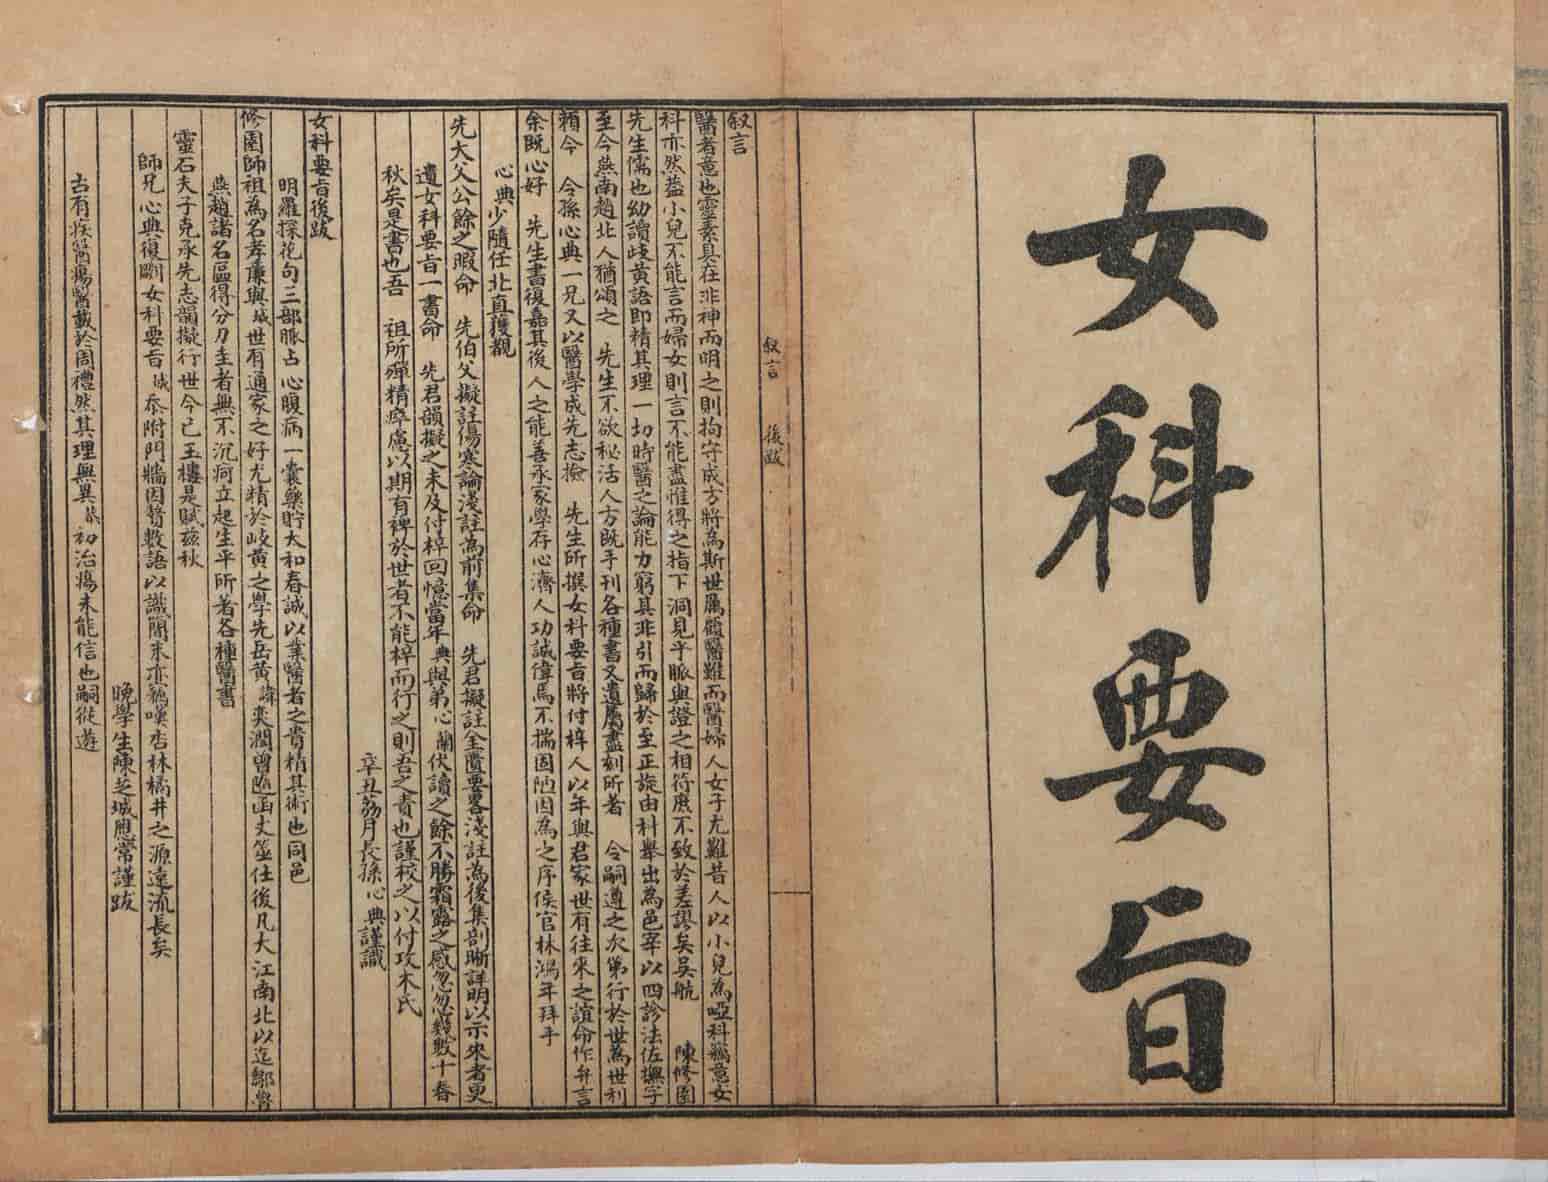 女科要旨
叙言　後跋
叙言
醫者意也靈素具在非神而明之則拘守成方將為斯世厲顧醫難而醫婦人女子尤難昔人以小兒為啞科竊意女
科亦然葢小兒不能言而婦女則言不能盡惟得之指下洞見乎脈與證之相符庶不致於差謬矣吳航　陳修園
先生儒也幼讀歧黃語即精其理一切時醫之論能力窮其非引而歸於至正旋由科舉出為邑宰以四診法佐撫字
至今燕南趙北人猶頌之　先生不欲秘活人方既手刊各種書又遺屬盡刻所著　令嗣遵之次第行於世為世利
賴今　令孫心典一兄又以醫學成先志撿　先生所撰女科要旨將付梓人以年與君家世有往來之誼命作弁言
余既心好　先生書復嘉其後人之能善承家學存心濟人功誠偉焉不揣固陋因為之序侯官林鴻年拜手
心典少隨任北直獲覩
先大父公餘之暇命　先伯父擬註傷寒論淺註為前集命　先君擬註金匱要畧淺註為後集剖晰詳明以示來者更
遺女科要旨一書命　先君韻擬之未及付梓回憶當年典與弟心蘭伏讀之餘不勝霜露之感忽忽 數十春
秋矣是書也吾　祖所殫精瘁慮以期有裨於世者不能梓而行之則吾之責也謹校之以付攻木氏
辛丑荔月長孫心典謹識
女科要旨後跋
明羅探花句三部脈占心腹病一囊藥貯大和春誠以業醫者之貴精其術也同邑
修園師祖為名孝廉與城世有通家之好尤精於岐黃之學先岳黃諱奕潤曾 函丈筮仕後凡大江南北以迄鄒魯
燕趙諸名區得分刀圭者無不沉疴立起生平所著各種醫書
靈石夫子克承先志韻擬行世今已玉樓是賦茲秋
師兄心典復劂女科要旨城忝附門牆因贅數語以識關末亦竊嘆杏林橘井之源遠流長矣
晚學生陳芝城應常謹跋
古有疾醫瘍醫載於周禮然其理無異恭初治瘍未能信也嗣從遊